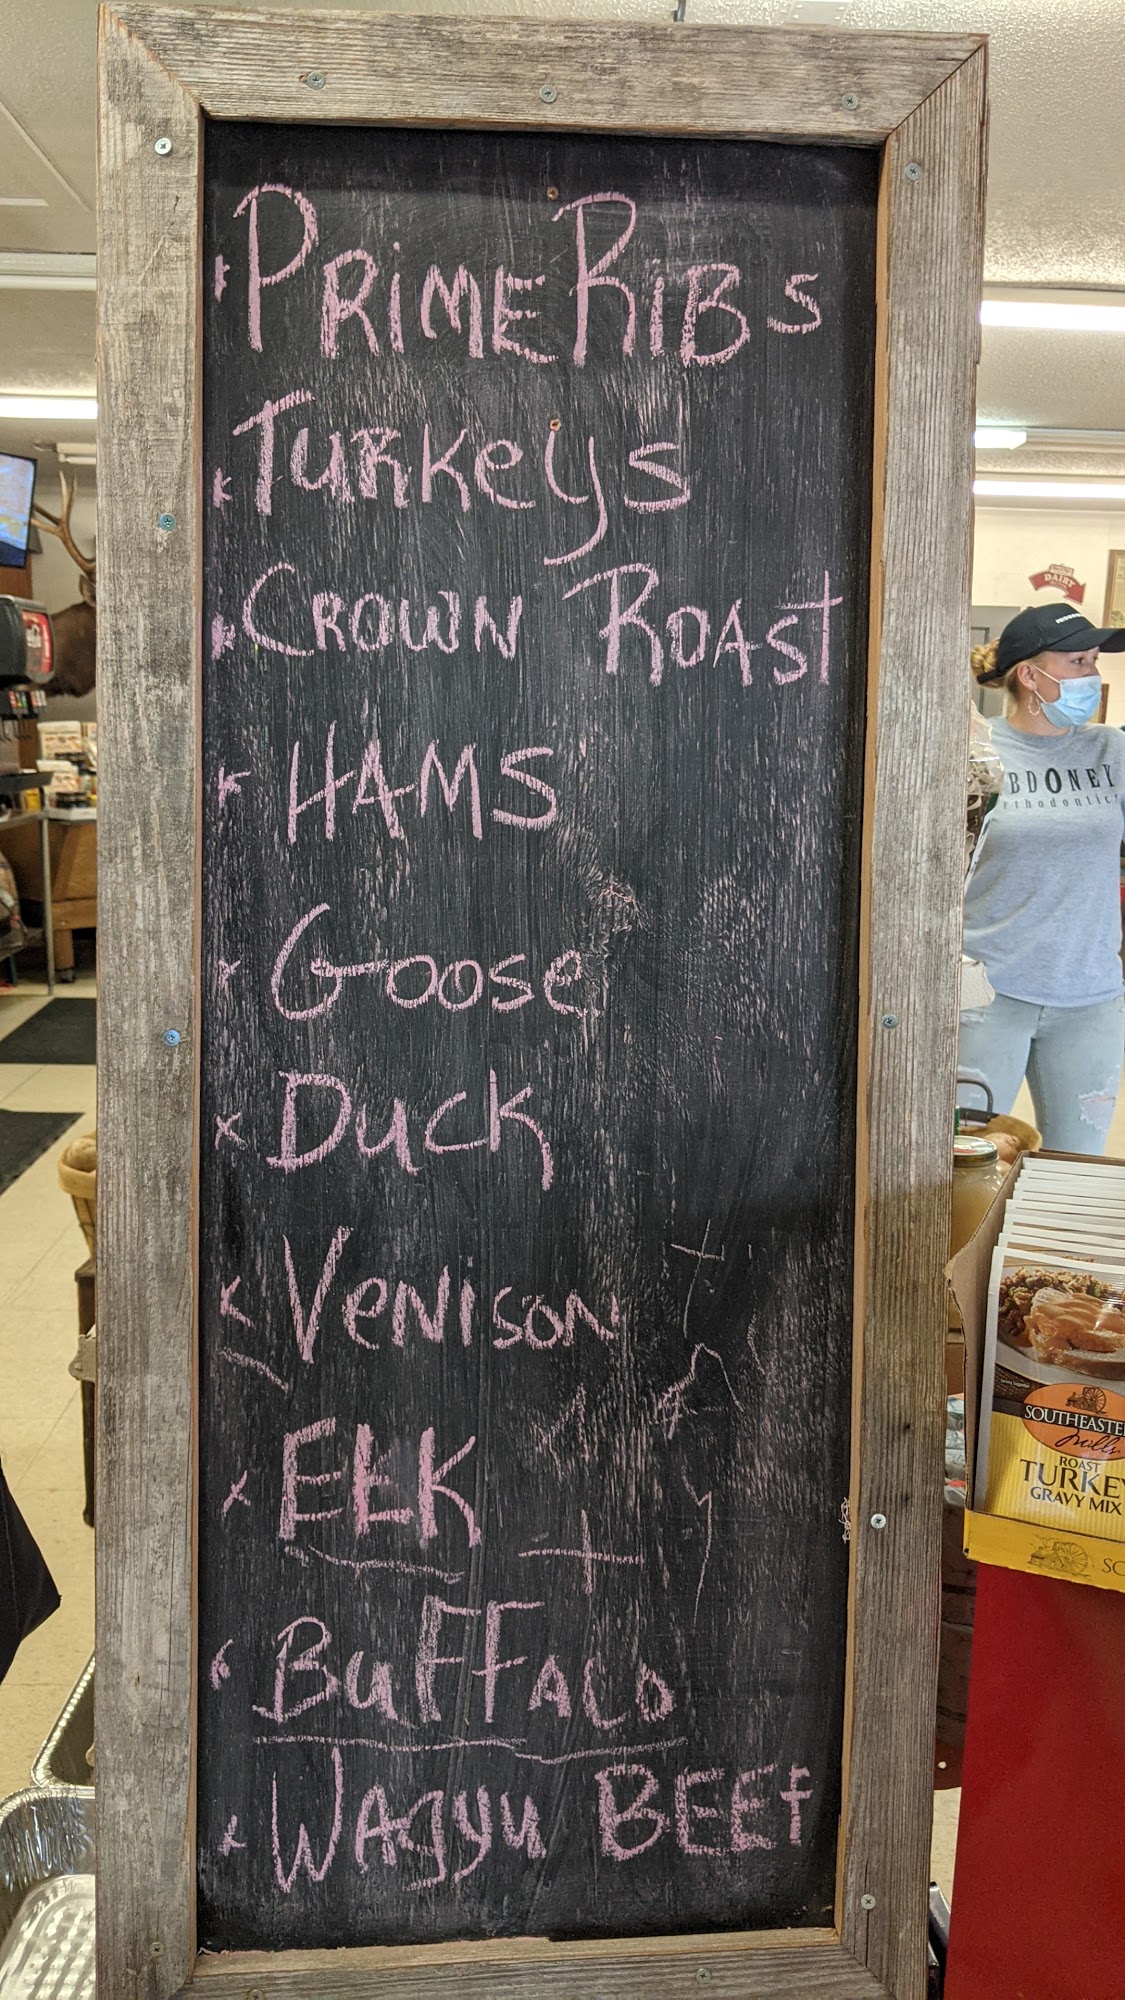 Prime Ribs
Turkeys
Crown Roast
HAMS
Goose
Duck
Venison
ELK
Buffalo
Wagyu BEEf
DAIRY
BDONEY
rthodontics
SOUTHEASTE
Mills
ROAST
TURKEY
GRAVY MIX
SO